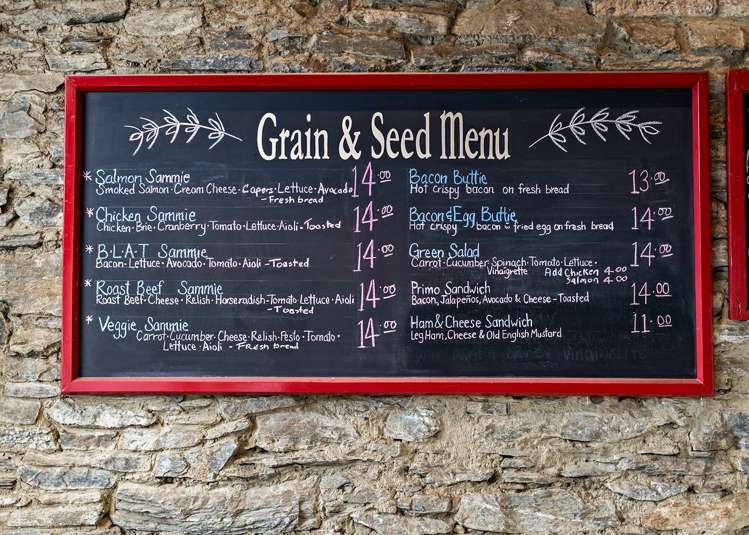 Grain & Seed Menu
* Salmon Sammie 14.00
Smoked Salmon · Cream Cheese · Capers · Lettuce · Avocado
- Fresh bread
* Chicken Sammie 14.00
Chicken · Brie · Cranberry · Tomato · Lettuce · Aioli - Toasted
* B·L·A·T Sammie 14.00
Bacon · Lettuce · Avocado · Tomato · Aioli - Toasted
* Roast Beef Sammie 14.00
Roast Beef · Cheese · Relish · Horseradish · Tomato · Lettuce · Aioli
- Toasted
* Veggie Sammie 14.00
Carrot · Cucumber · Cheese · Relish · Pesto · Tomato ·
Lettuce · Aioli - Fresh bread
Bacon Buttie 13.00
Hot crispy bacon on fresh bread
Bacon & Egg Buttie 14.00
Hot crispy bacon & fried egg on fresh bread
Green Salad 14.00
Carrot · Cucumber · Spinach · Tomato · Lettuce ·
Vinaigrette Add Chicken 4.00
Salmon 4.00
Primo Sandwich 14.00
Bacon, Jalapeños, Avocado & Cheese - Toasted
Ham & Cheese Sandwich 11.00
Leg Ham, Cheese & Old English Mustard